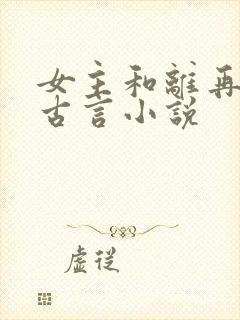 女主和離再
古言小說
虛從